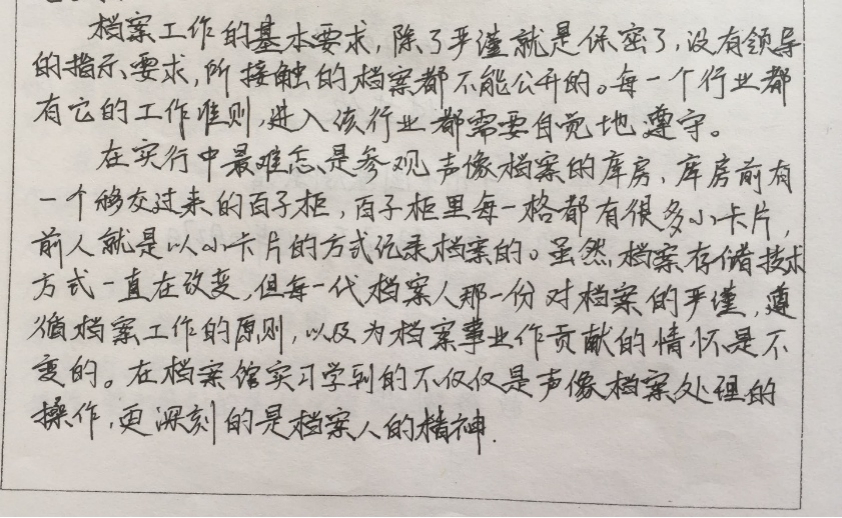 档案工作的基本要求，除了严谨就是保密了，没有领导
的指示、要求，所接触的档案都不能公开的。每一个行业都
有它的工作准则，进入该行业都需要自觉地遵守。
在实行中最难忘是参观声像档案的库房，库房前有
一个移交过来的百子柜，百子柜里每一格都有很多小卡片，
前人就是以小卡片的方式纪录档案的。虽然，档案存储技术
方式一直在改变，但每一代档案人那一份对档案的严谨，遵
循档案工作的原则，以及为档案事业作贡献的情怀是不
变的。在档案馆实习学到的不仅仅是声像档案处理的
操作，更深刻的是档案人的精神.